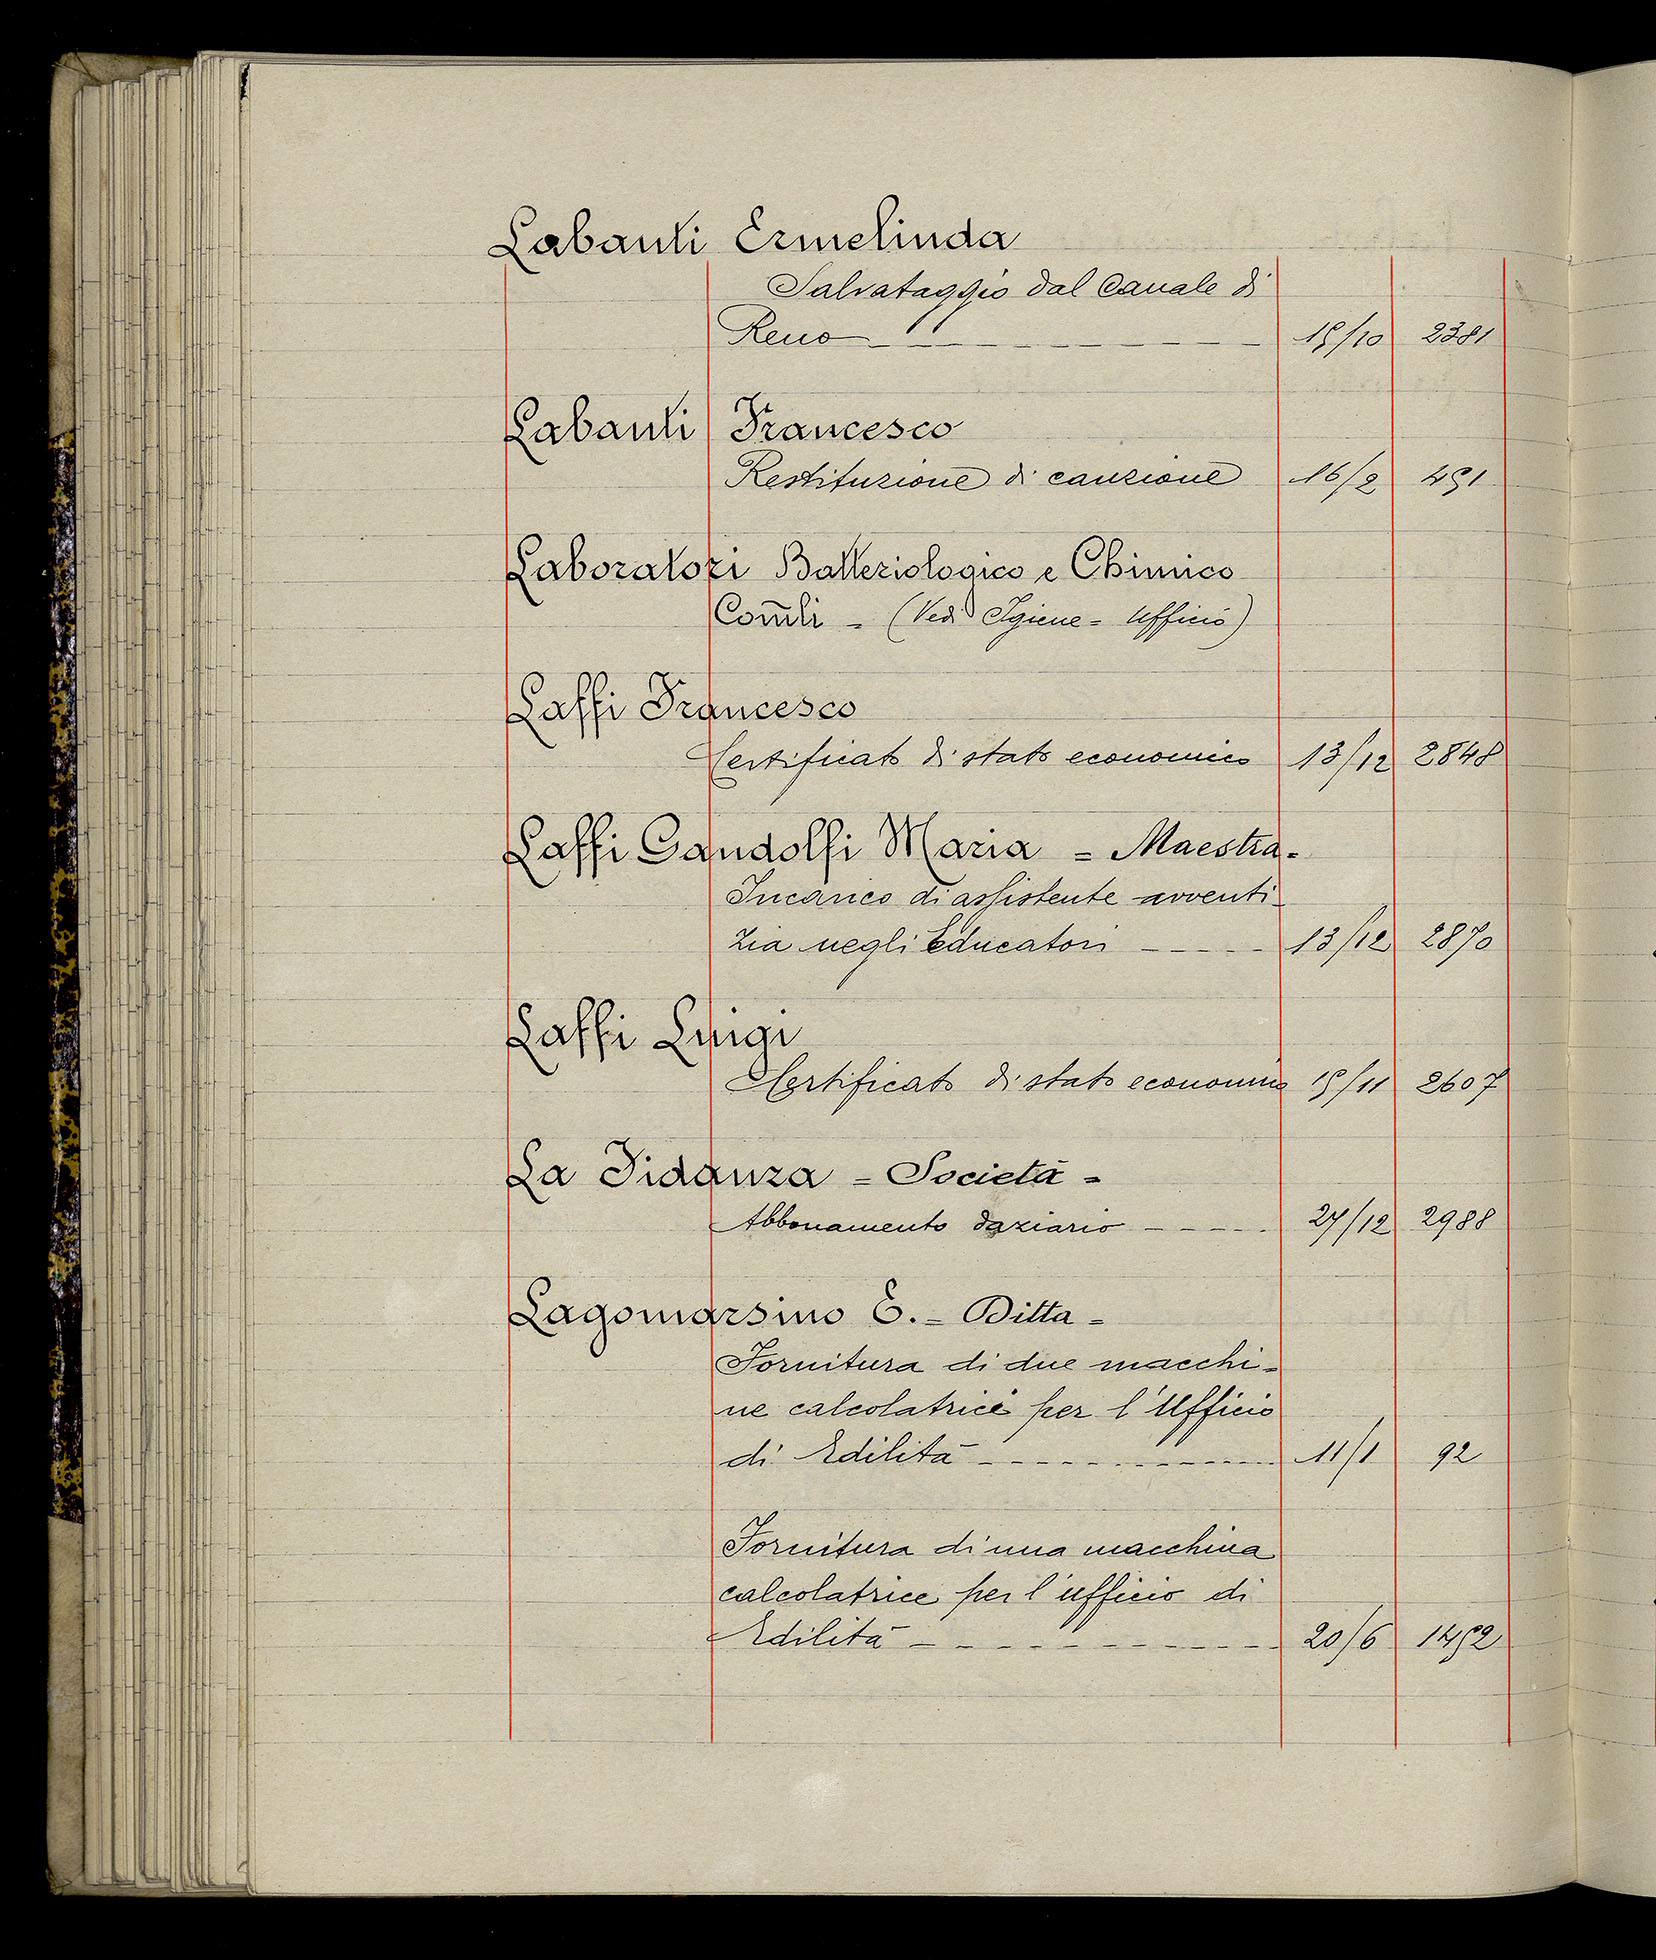 Labanti Ermelinda
Salvataggio dal Canale di
Reno 15/10 2381
Labanti Francesco
Restituzione di cauzione 16/2 451
Laboratori Batteriologico e Chimico
Com̃li - (Vedi Igiene = Ufficio)
Laffi Francesco
Certificato di stato economico 13/12 2848
Laffi Gandolfi Maria = Maestra =
Incarico di assistente avventi-
zia negli Educatori 13/12 2870
Laffi Luigi
Certificato di stato economico 15/11 2607
La Fidanza = Società =
Abbonamento daziario 27/12 2988
Lagomarsino E. = Ditta =
Fornitura di due macchi=
ne calcolatrici per l'Ufficio
di Edilità 11/1 92
Fornitura di una macchina
calcolatrice per l'ufficio di
Edilità 20/6 1452